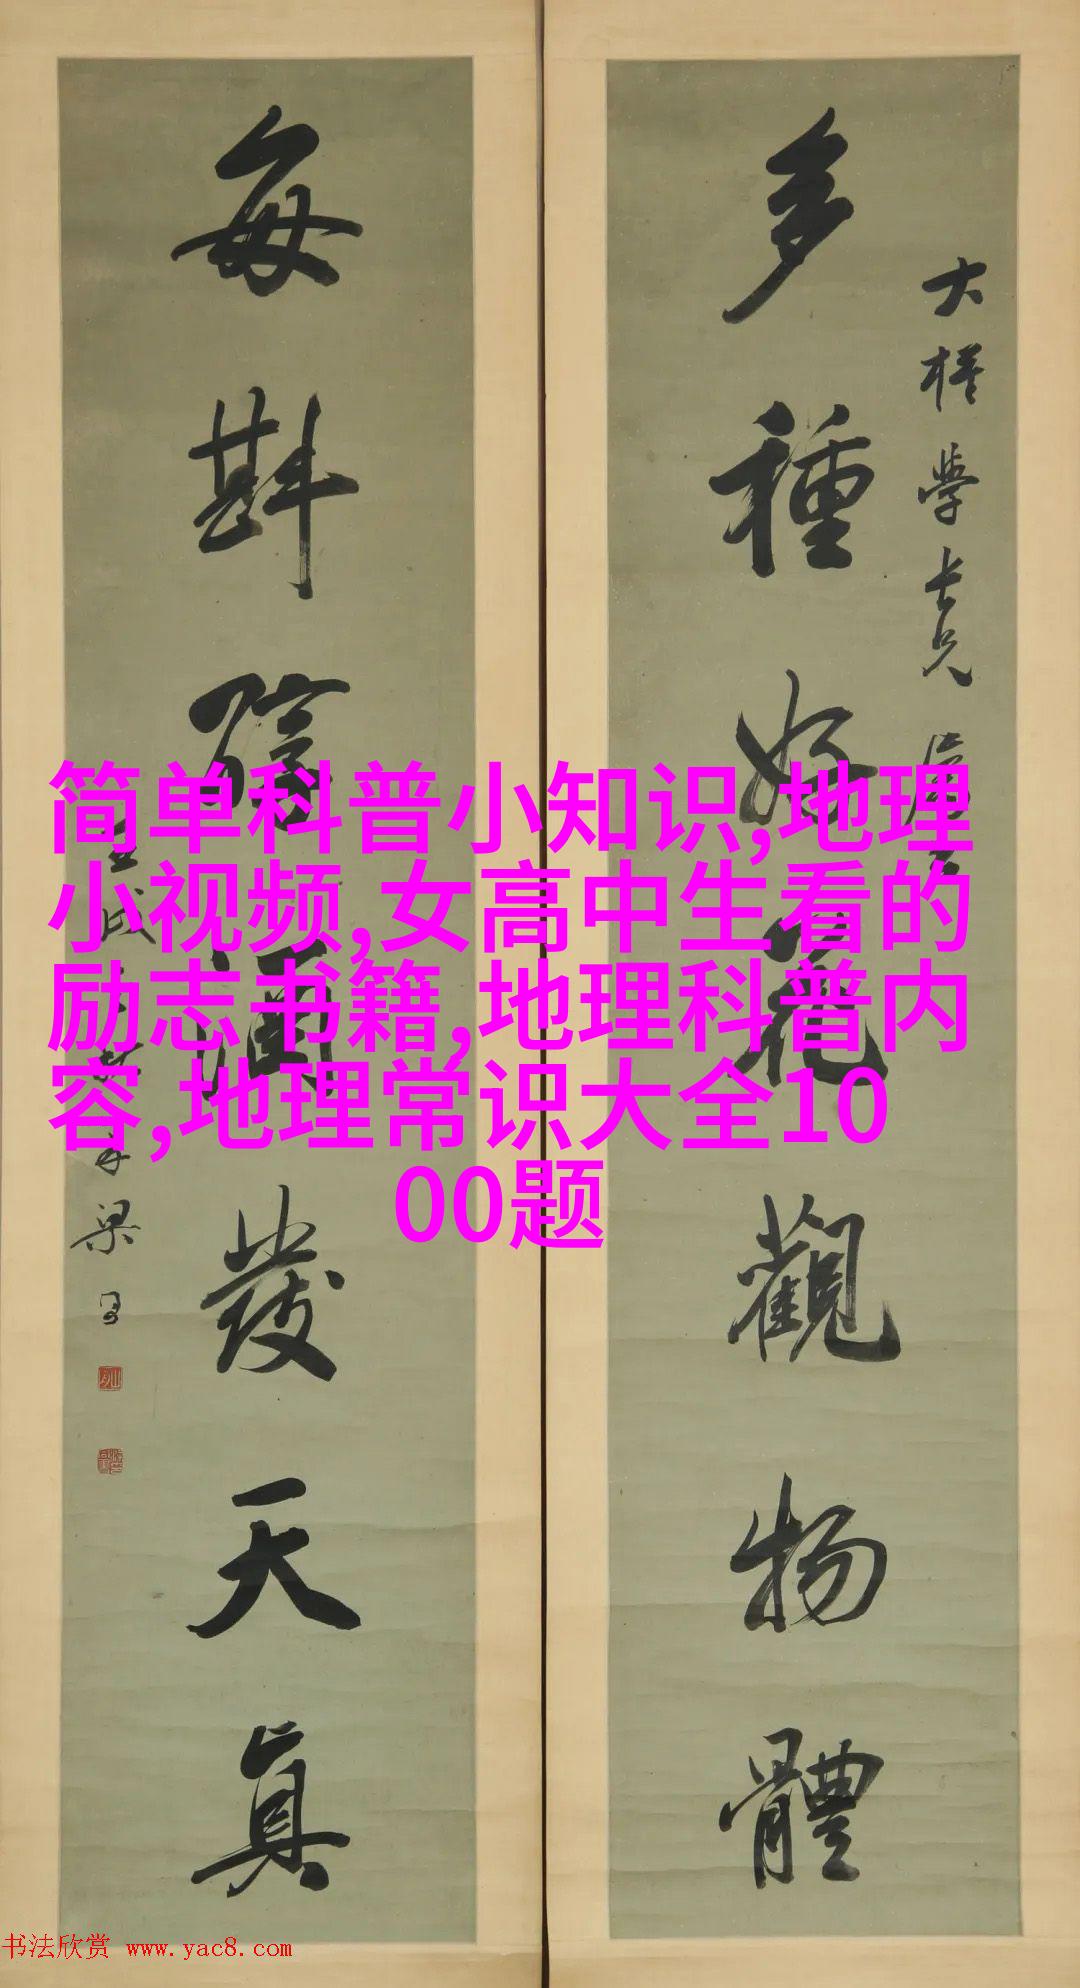 多種好花觀物體
大楳學長兄
每斟醇酒發天真
梁同
简单科普小知识,地理
小视频,女高中生看的
励志书籍,地理科普内
容,地理常识大全10
00题
书法欣赏 www.yac8.com